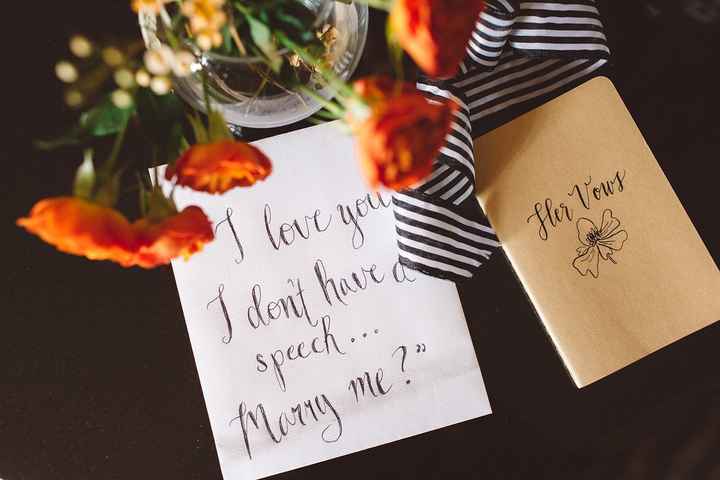 I love you.
I don't have a
speech...
Marry me?”
Her Vows